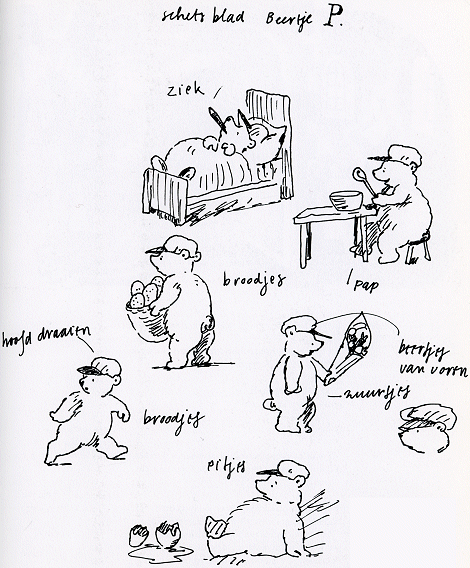 schets blad Beertje P.
ziek
broodjes
pap
hoofd draaien
beertjes
van voren
zuurtjes
broodjes
eitjes